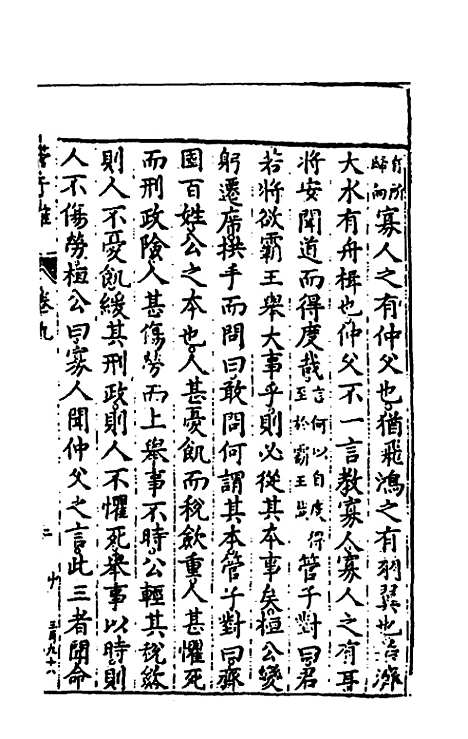 所歸而寡人之有仲父也猶飛鴻之有羽翼也若濟
大水有舟楫也仲父不一言教寡人寡人之有耳
將安聞道而得度哉言何以自度得至於霸王管子對曰君
若將欲霸王舉大事乎則必從其本事矣桓公變
躬遷席拱手而問曰敢問何謂其本管子對曰齊
國百姓公之本也人甚憂飢而稅斂重人甚懼死
而刑政險人甚傷勞而上舉事不時公輕其稅斂
則人不憂飢緩其刑政則人不懼死舉事以時則
人不傷勞桓公曰寡人聞仲父之言此三者聞命
管子榷
卷九
三百九十八